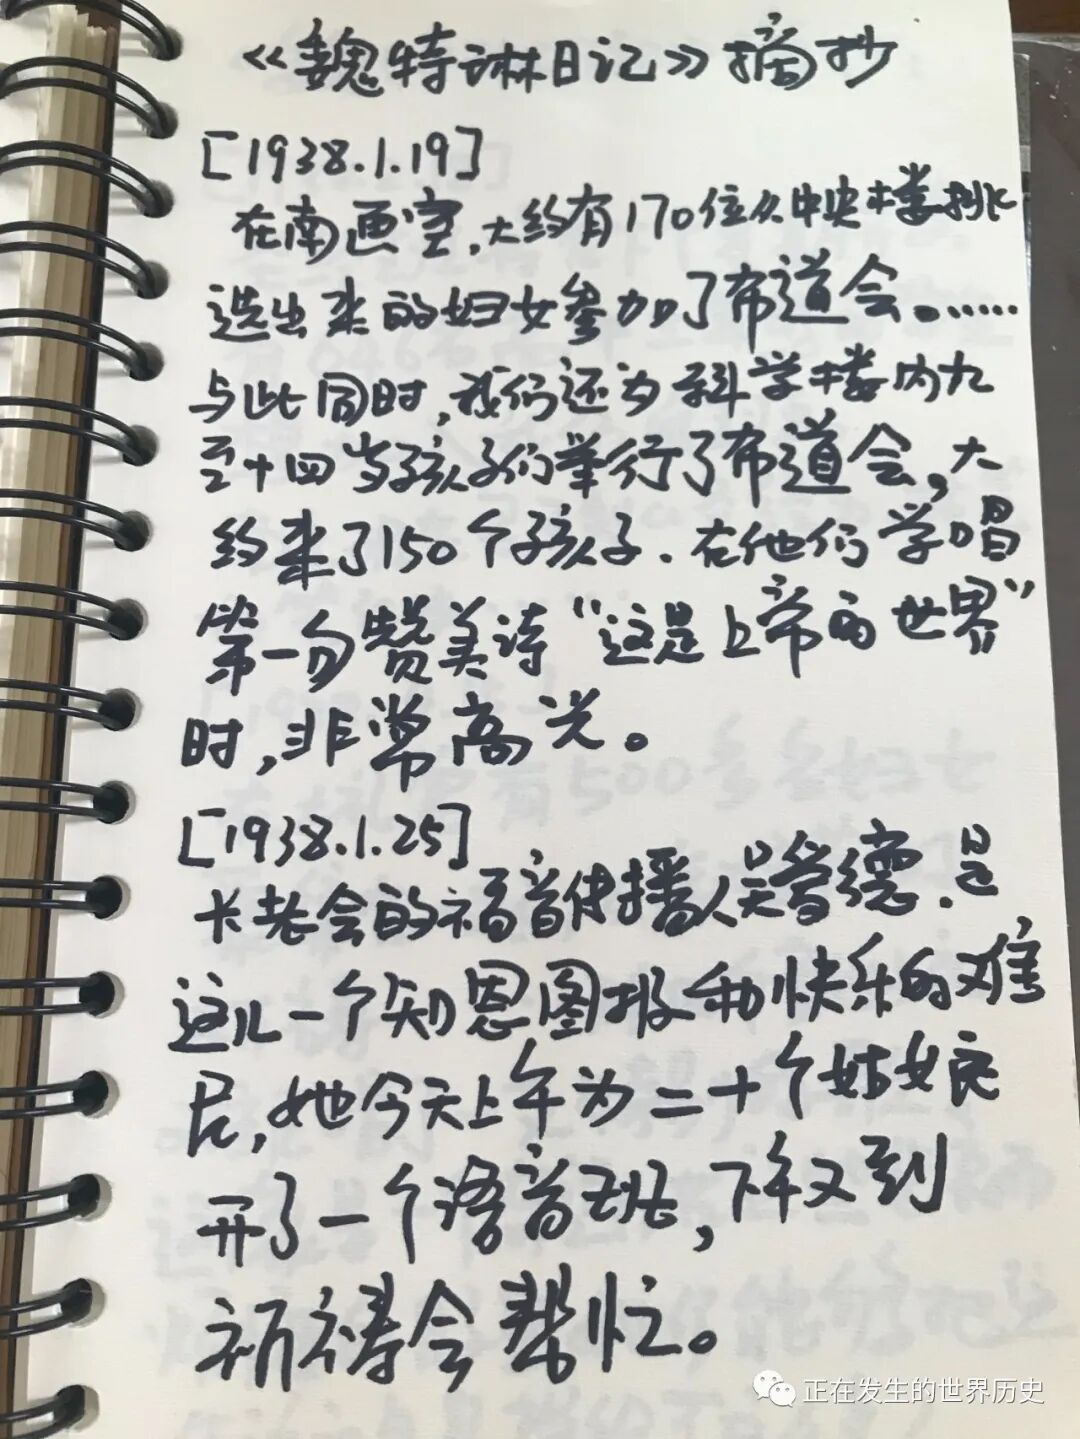 《魏特琳日记》摘抄
[1938.1.19]
在南画室，大约有170位从中央楼挑
选出来的妇女参加了布道会。……
与此同时，我们还为科学楼内九
至十四岁孩子们举行了布道会，大
约来了150个孩子．在他们学唱
第一句赞美诗“这是上帝的世界”
时，非常高兴。
[1938.1.25]
长老会的福音传播人吴爱德．是
这儿一个知恩图报和快乐的难
民，她今天上午为二十个姑娘
开了一个语音班，下午又到
祈祷会帮忙。
正在发生的世界历史